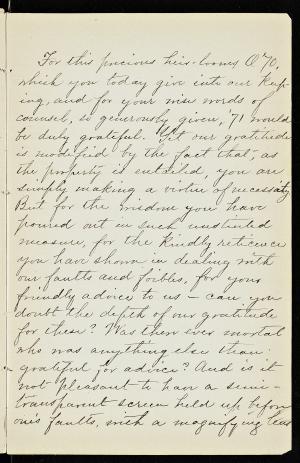 For this precious heir-loom, O '70,
which you today give into our keep-
ing, and for your wise words of
counsel, so generously given, '71 would
be duly grateful. Yet our gratitude
is modified by the fact that, as
the property is entailed, you are
simply making a virtue of necessity.
But for the wisdom you have
poured out in such unstinted
measure, for the kindly reticence
you have shown in dealing with
our faults and foibles, for your
friendly advice to us — can you
doubt the depth of our gratitude
for these? Was there ever mortal
who was anything else than
grateful for advice? And is it
not pleasant to have a semi-
transparent screen held up before
one's faults, with a magnifying lens